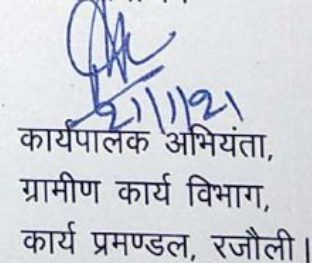 21/1/21
कार्यपालक अभियंता,
ग्रामीण कार्य विभाग,
कार्य प्रमण्डल, रजौली।